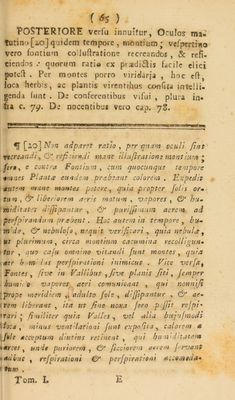 ( 65 )
POSTERIORE versu innuitur, Oculos ma-
tutino [20] quidem tempore, montium; vespertino
vero fontium collustratione recreandos, & refi-
ciendos: quorum ratio ex prædictis facile elici
potest. Per montes porro viridaria, hoc est,
loca herbis, ac plantis virentibus consita intelli-
genda sunt. De conferentibus visui, plura in-
fra c. 79. De nocentibus vero cap. 78.
¶ [20] Non adparet ratio, per quam oculi sint
recreandi, & reficiendi mane illustratione montium;
sero, e contra Fontium, cum quocunque tempore
hanc Plantæ eundem præbeant colorem. Expedit
autem mane montes petere, quia propter solis or-
tum, & liberiorem aeris motum, vapores, & hu-
miditates dissipantur, & purissimum aerem ad
respirandum præebent. Hoc autem in tempore, hu-
mido, & nebuloso, nequit verificari, quia nebulæ,
ut plurimum, circa montium cacumina recolligun-
tur, quo casu omnino vitandi sunt montes, quia
aer humidus perspirationi inimicus. Vice versa,
Fontes, sive in Vallibus, sive planis siti, semper
humido vapores aeri comunicant, qui nonnisi
prope meridiem, adulto sole, dissipantur, & ae-
rem liberant, ita ut sine noxa sero possit respi-
rari; similiter quia Valles, vel alia hujusmodi
loca, minus ventilationi sunt exposita, calorem a
sole acceptum diutius retinent, qui humiditatem
arcet, unde puriorem, & sicciorem aerem servant
adibus, respirationi & perspirationi accomoda-
tum.
Tom. I. E